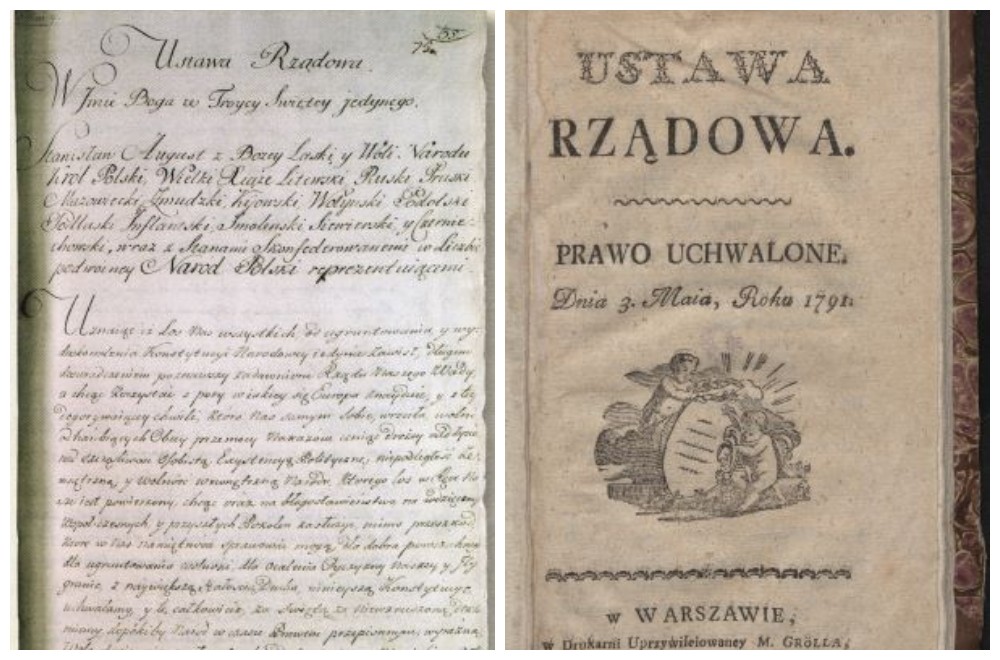 Ustawa Rządowa.
W Jmie Boga w Troycy Swiętey jedynego.
Stanisław August z Bożey Łaski y Woli Narodu
Krol Polski, Wielki Xiąże Litewski, Ruski Pruski
Mazowiecki, Zmudzki, Kijowski, Wołynski Podolski
Podlaski Jnflantski, Smolenski Siewierski, y Czernie-
chowski, wraz z Stanami Skonfederowanemi w liczbie
podwoiney Narod Polski reprezentuiącemi.
Uznaiąc iż Los Nas wszystkich, od ugruntowania y wy-
doskonalenia Konstytucyi Narodowey iedynie zawisł, długim
doswiadczeniem poznawszy zadawnione Rządu Naszego Wady,
a chcąc korzystać z pory w iakiey się Europa znayduie, y z tey
dogorywaiącey chwili, ktora Nas samym Sobie wrociła, wolni
od hanbiących Obcey przemocy Nakazow ceniąc drożey nad życie
nad szczęśliwość Osobistą, Exystencyą Polityczną, niepodległość ze-
wnętrzną, y wolność wewnętrzną Narodu, ktorego los w ręce Na-
sze iest powierzony, chcąc oraz na błogosławieństwo na wdzięczność
Wspołczesnych, y przyszłych Pokolen zasłużyć, mimo przeszkod,
ktore w Nas namiętności sprawować mogą, dla dobra powszechnego
dla ugruntowania wolności, dla ocalenia Oyczyzny Naszey y Jey
granic, z naywiększą stałością Ducha, ninieyszą Konstytucyą
uchwalamy, y tę całkowicie, za Swiętą, za Niewzruszoną dekla-
ruiemy, dopokiby Narod w czasie Prawem przepisanym, wyraźną
USTAWA
RZĄDOWA.
PRAWO UCHWALONE.
Dnia 3. Maia, Roku 1791.
w WARSZAWIE,
w Drukarni Uprzywileiowaney M. GRÖLLA,